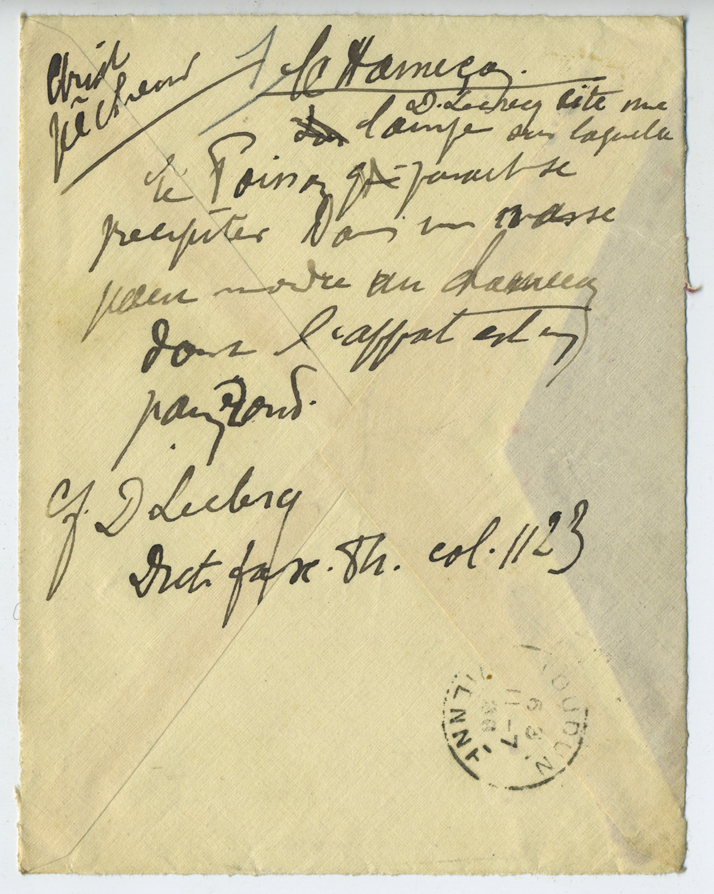 Christ
pêcheur
Le Hameçon.
D. Leclercq cite une
lampe sur laquelle
le Poisson paraît se
precipiter Dans un vase
pour mordre au hameçon
dont l'appat est un
pain Rond.
Cf. D Leclercq
Dict. fasc. Th. col. 1123
LOUDUN
VIENNE
6 3
11-7